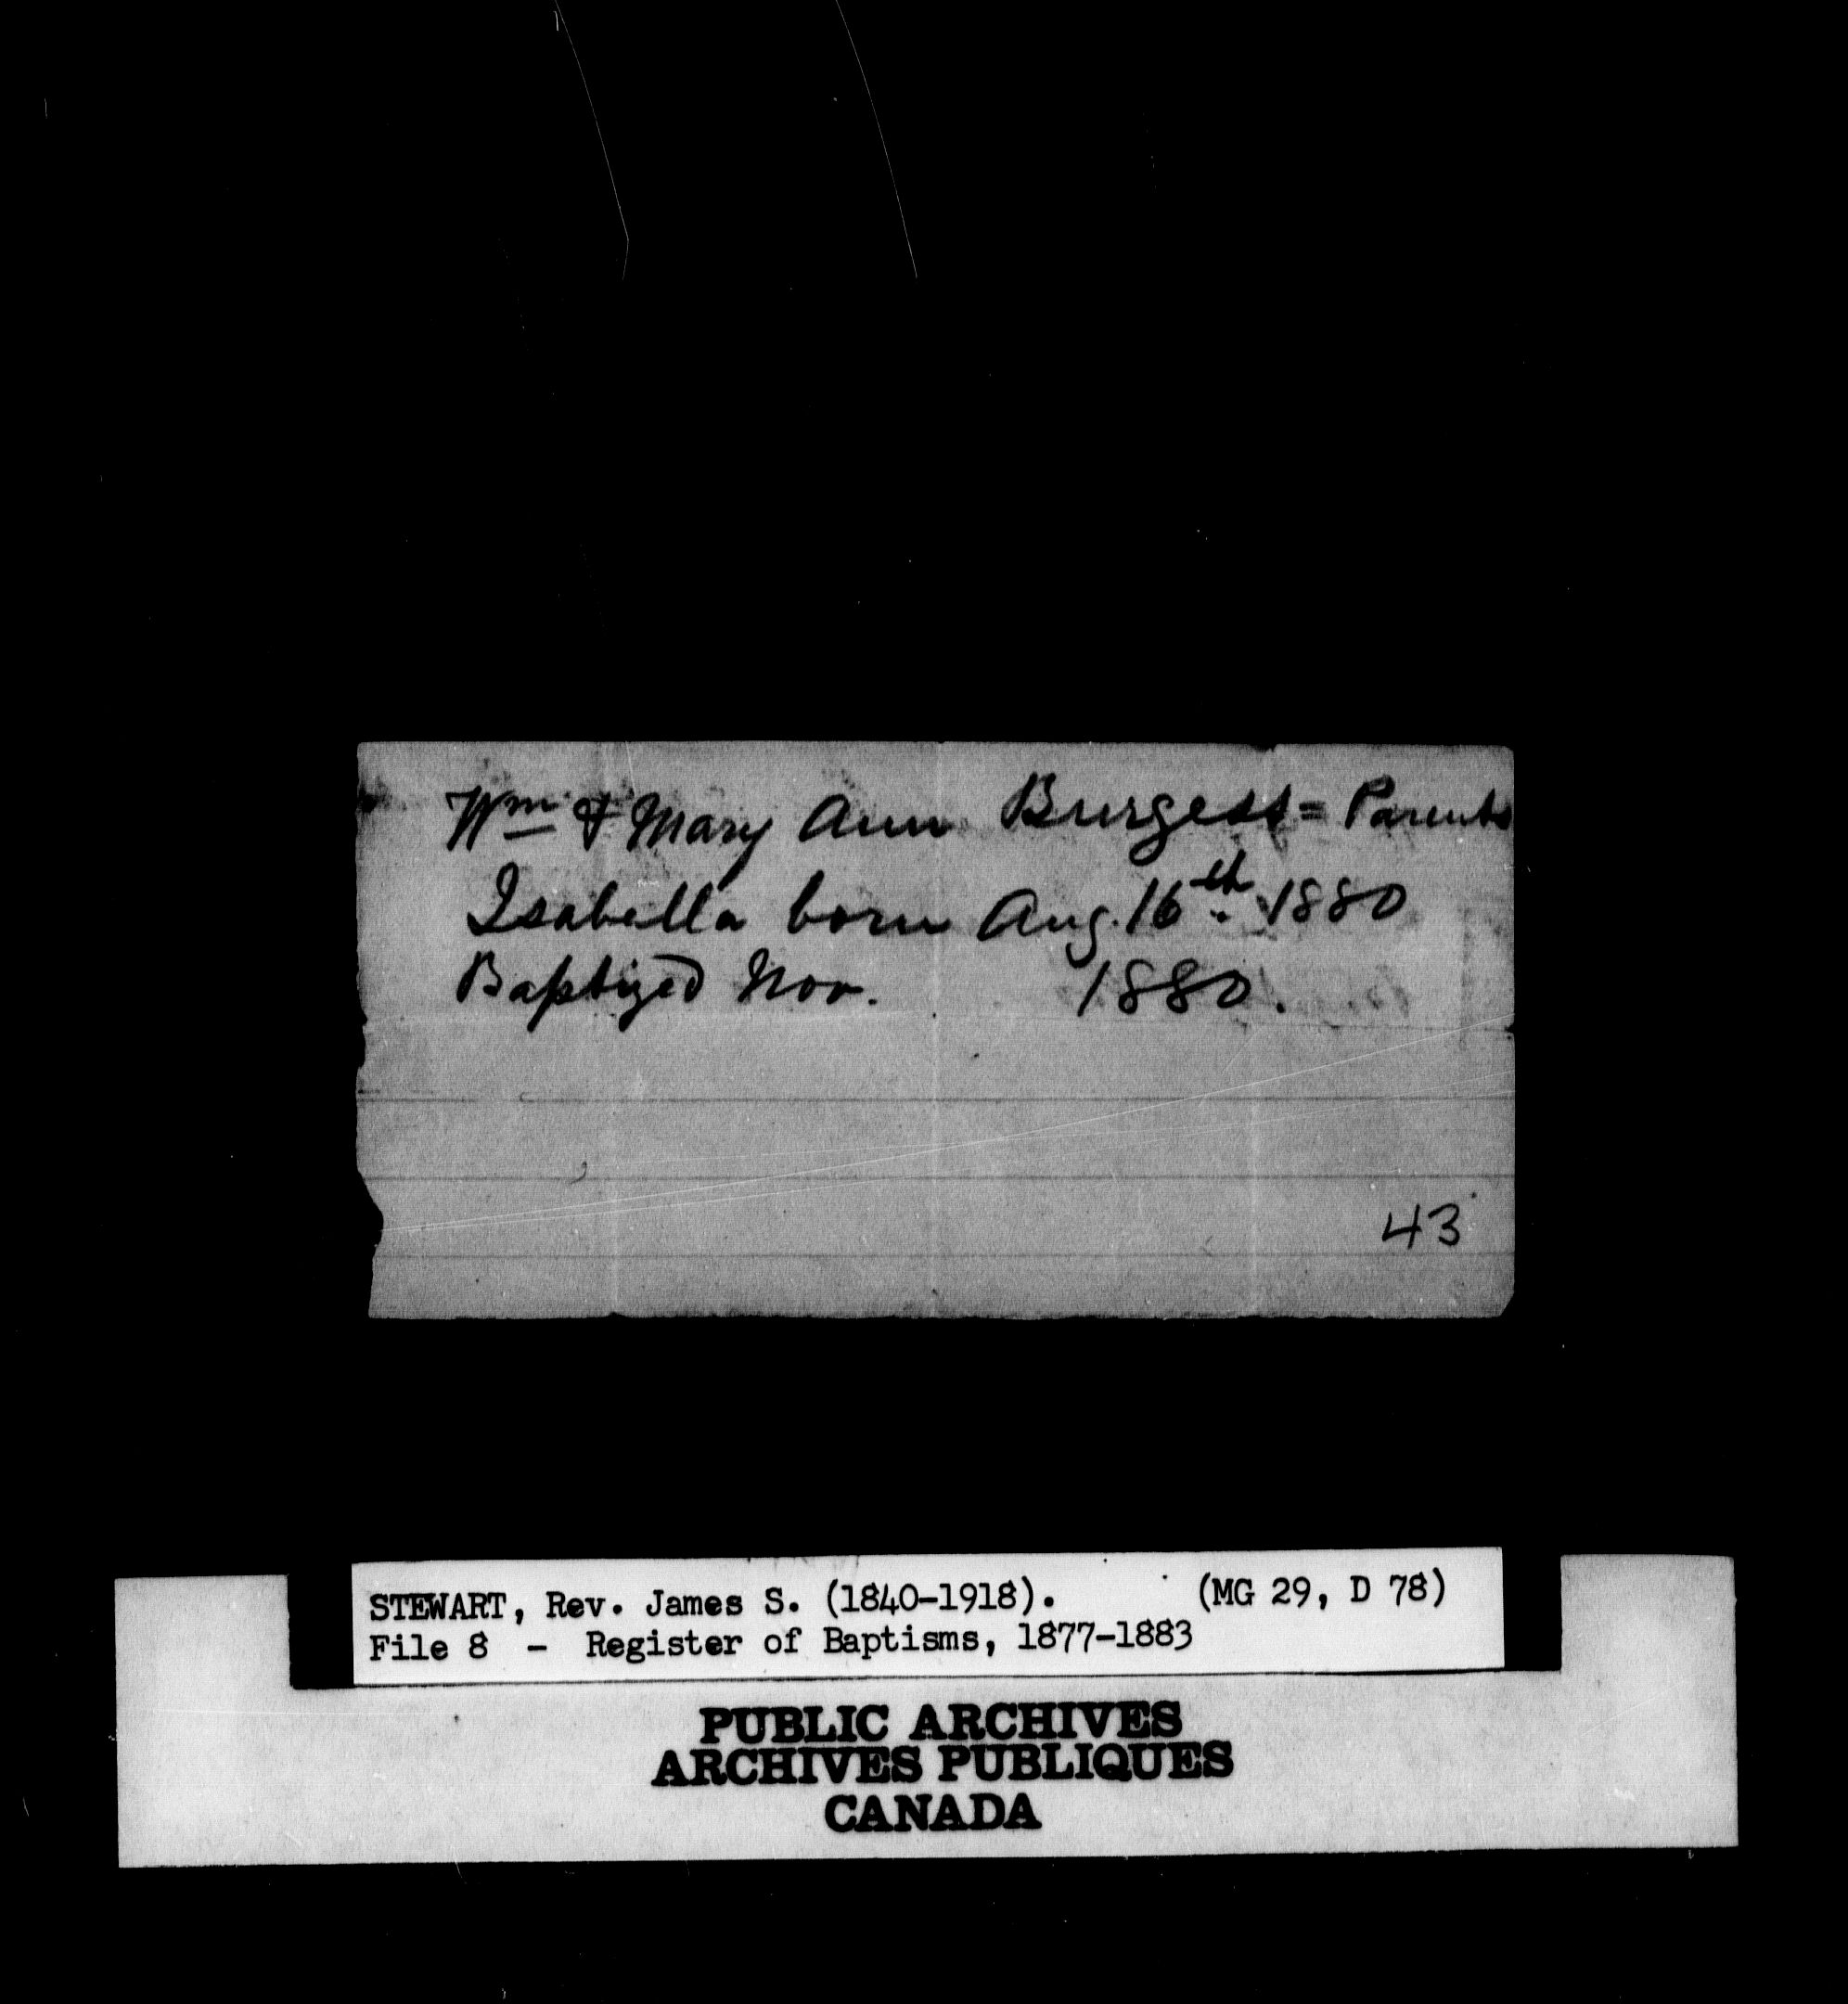 Wm & Mary Ann Burgess = Parents
Isabella born Aug. 16th. 1880
Baptized Nov. 1880.
43
STEWART, Rev. James S. (1840-1918). (MG 29, D 78)
File 8 - Register of Baptisms, 1877-1883
PUBLIC ARCHIVES
ARCHIVES PUBLIQUES
CANADA